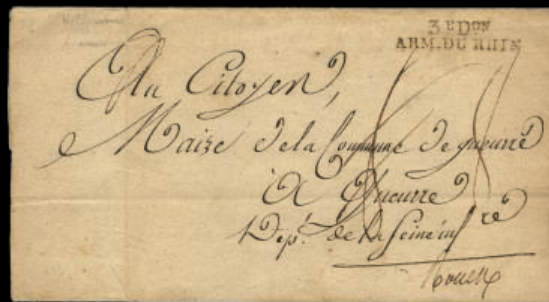 3E DON
ARM. DU RHIN
Au Citoyen,
Maire de la Commune de gueurre
A Gueurre
Dep.t de la Seine inf re
Rouen